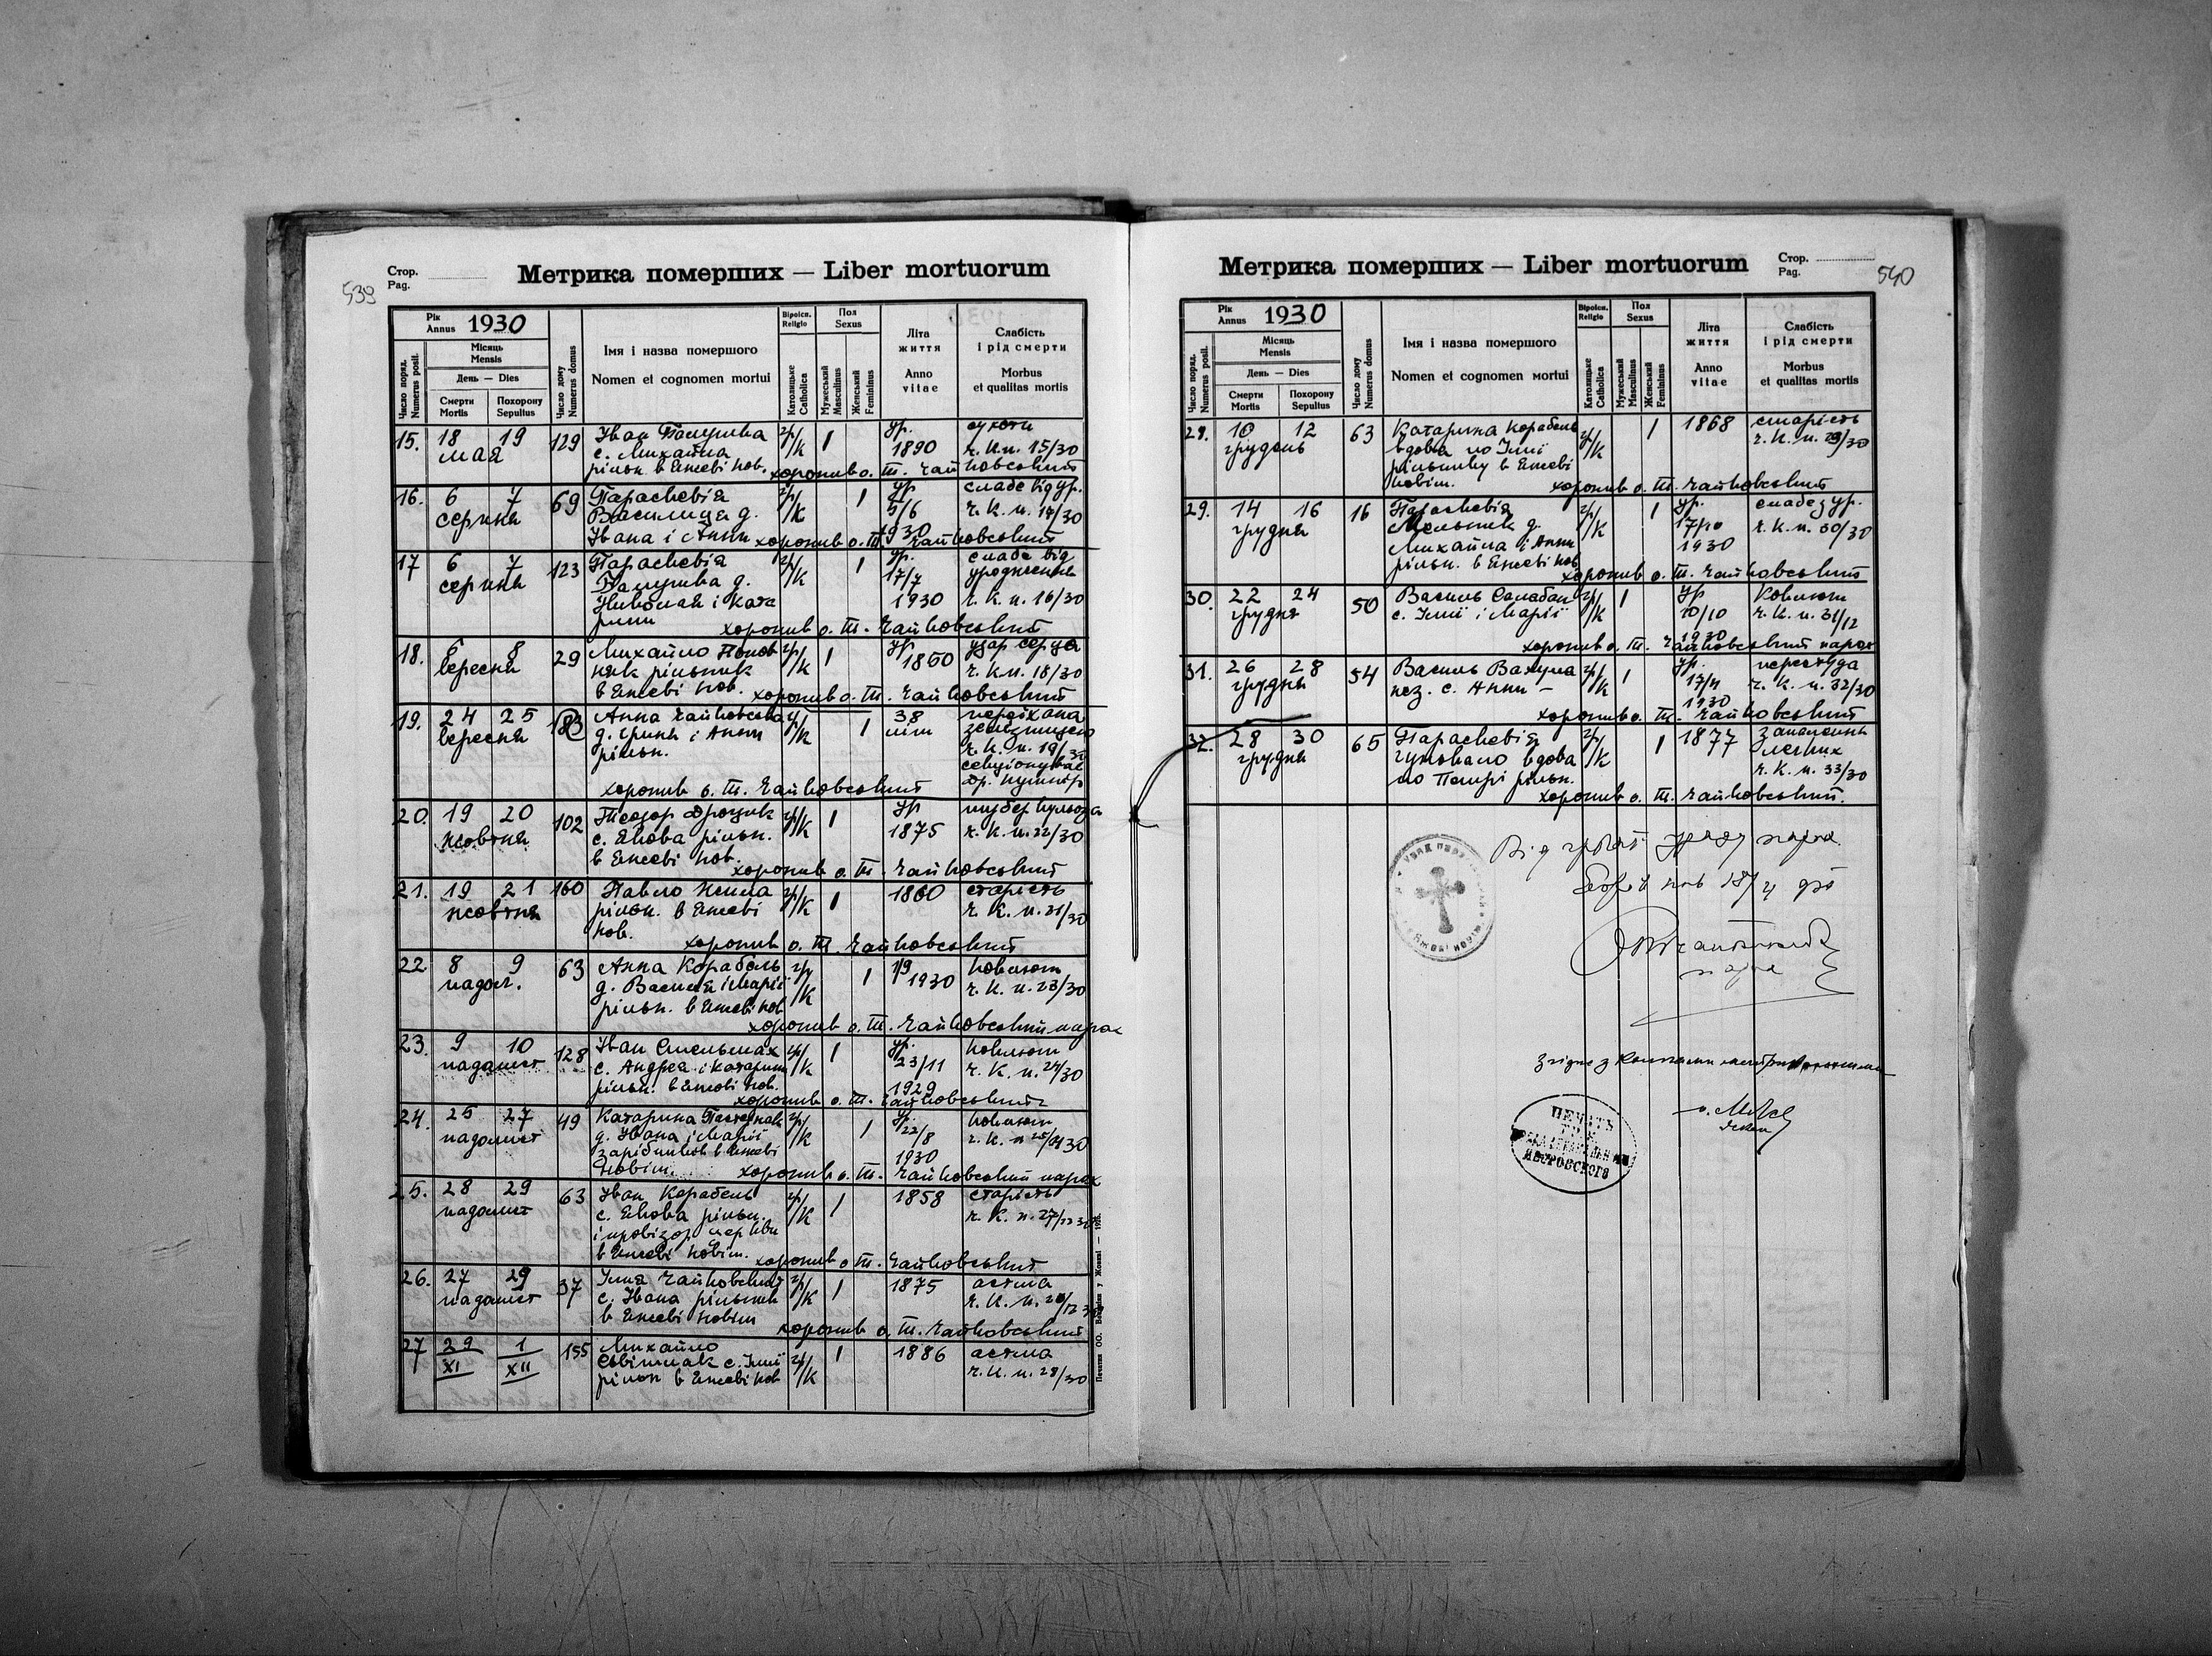 539
Стор.
Pag.
Метрика померших — Liber mortuorum
Рік
Annus 1930
Число поряд.
Numerus posit.
Місяць
Mensis
День — Dies
Смерти
Mortis
Похорону
Sepultus
Число дому
Numerus domus
Імя і назва помершого
Nomen et cognomen mortui
Віроісп.
Religio
Католицьке
Catholica
Пол
Sexus
Мужеський
Masculinus
Женський
Femininus
Літа
життя
Anno
vitae
Слабість
і рід смерти
Morbus
et qualitas mortis
15. 18 19 129 Іван гр/К 1 ур. сухоти
мая с. Михайла 1890 ч. К. п. 15/30
рільн. в Ежеві нов. хоронив о. Т. Чайковський
16. 6 7 69 Параскевія гр/К 1 ур слабе від ур.
серпня Василиця д. 5/6 ч. К. п. 17/30
Івана і Анни 1930 хоронив о. Т. Чайковський
17 6 7 123 Параскевія гр/К 1 ур. слабе від
серпня д. 17/7 уродження
Николая і Ката 1930 ч. К. п. 16/30
рини хоронив о. Т. Чайковський
18. 6 8 29 Михайло гр/К 1 ур удар серця
вересня рільник 1860 ч. К. п. 18/30
в Ежеві нов. хоронив о. Т. Чайковський
19. 24 25 183 Анна Чайковська гр/К 1 38 переїхана
вересня д. Гриня і Анни літ зелізницею
рільн. ч. К. п. 19/30
секціонував
др.
хоронив о. Т. Чайковський
20. 19 20 102 Теодор гр/К 1 ур туберкульоза
жовтня с. Якова рільн. 1875 ч. К. п. 22/30
в Ежеві нов. хоронив о. Т. Чайковський
21. 19 21 160 Павло гр/К 1 1860 старість
жовтня рільн. в Ежеві ч. К. п. 21/30
нов. хоронив о. Т. Чайковський
22 8 9 63 Анна Корабель гр/К 1 1/9 коклюш
падол. д. Василя і Марії 1930 ч. К. п. 23/30
рільн. в Ежеві нов хоронив о. Т. Чайковський парох
23. 9 10 128 Іван Стельмах гр/К 1 ур. коклюш
падолист с. Андрея і Катарини 23/11 ч. К. п. 24/30
рільн. в Ежеві нов. 1929
хоронив о. Т. Чайковський
24. 25 27 49 Катарина гр/К 1 ур. коклюш
падолист д. Івана і Марії 22/8 ч. К. п
зарібників в Ежеві 1930
Новім. хоронив о. Т. Чайковський парох
25. 28 29 63 Іван Корабель гр/К 1 1858 старість
падолист с. Якова рільн. ч. К. п. 27/12 30
і провізор церкви
в Ежеві новім. хоронив о Т. Чайковський
26. 27 29 37 Ілля Чайковський гр/К 1 1875 астма
падолист с. Івана рільник ч. К. п.
в Ежеві новім хоронив о. Т. Чайковський
27 29 1 155 Михайло гр/К 1 1886 астма
XI XII с. Іллі ч. К. п. 28/30
рільн в Ежеві нов
540
Стор.
Pag.
Метрика померших — Liber mortuorum
Рік
Annus 1930
Число поряд.
Numerus posit.
Місяць
Mensis
День — Dies
Смерти
Mortis
Похорону
Sepultus
Число дому
Numerus domus
Імя і назва помершого
Nomen et cognomen mortui
Віроісп.
Religio
Католицьке
Catholica
Пол
Sexus
Мужеський
Masculinus
Женський
Femininus
Літа
життя
Anno
vitae
Слабість
і рід смерти
Morbus
et qualitas mortis
10 12 63 Катарина Корабель гр/К 1 1868 старість
грудень вдова по Іллі ч. К. п. 29/30
рільнику в Ежеві
новім. хоронив о. Т. Чайковський
29. 14 16 16 Параскевія гр/К 1 ур. слабе з ур.
грудня Мельник д. 17/10 ч. К. п. 30/30
Михайла і Анни 1930
рільн. в Ежеві нов хоронив о. Т. Чайковський
30. 22 24 50 Василь Салабай гр/К 1 ур коклюш
грудня с. Іллі і Марії 10/10 ч. К. п. 31/12
1930
хоронив о. Т. Чайковський парох
31. 26 28 54 Василь Вакула гр/К 1 ур. перестуда
грудня нез. с. Анни — 17/11 ч. К. п. 32/30
1930
хоронив о. Т. Чайковський
32. 28 30 65 Параскевія гр/К 1 1877 запалення
грудня вдова легких
по Петрі рільн. ч. К. п. 33/30
хоронив о. Т. Чайковський.
Від уряду
парох
Згідне з
о.
декан
ПЕЧАТЬ